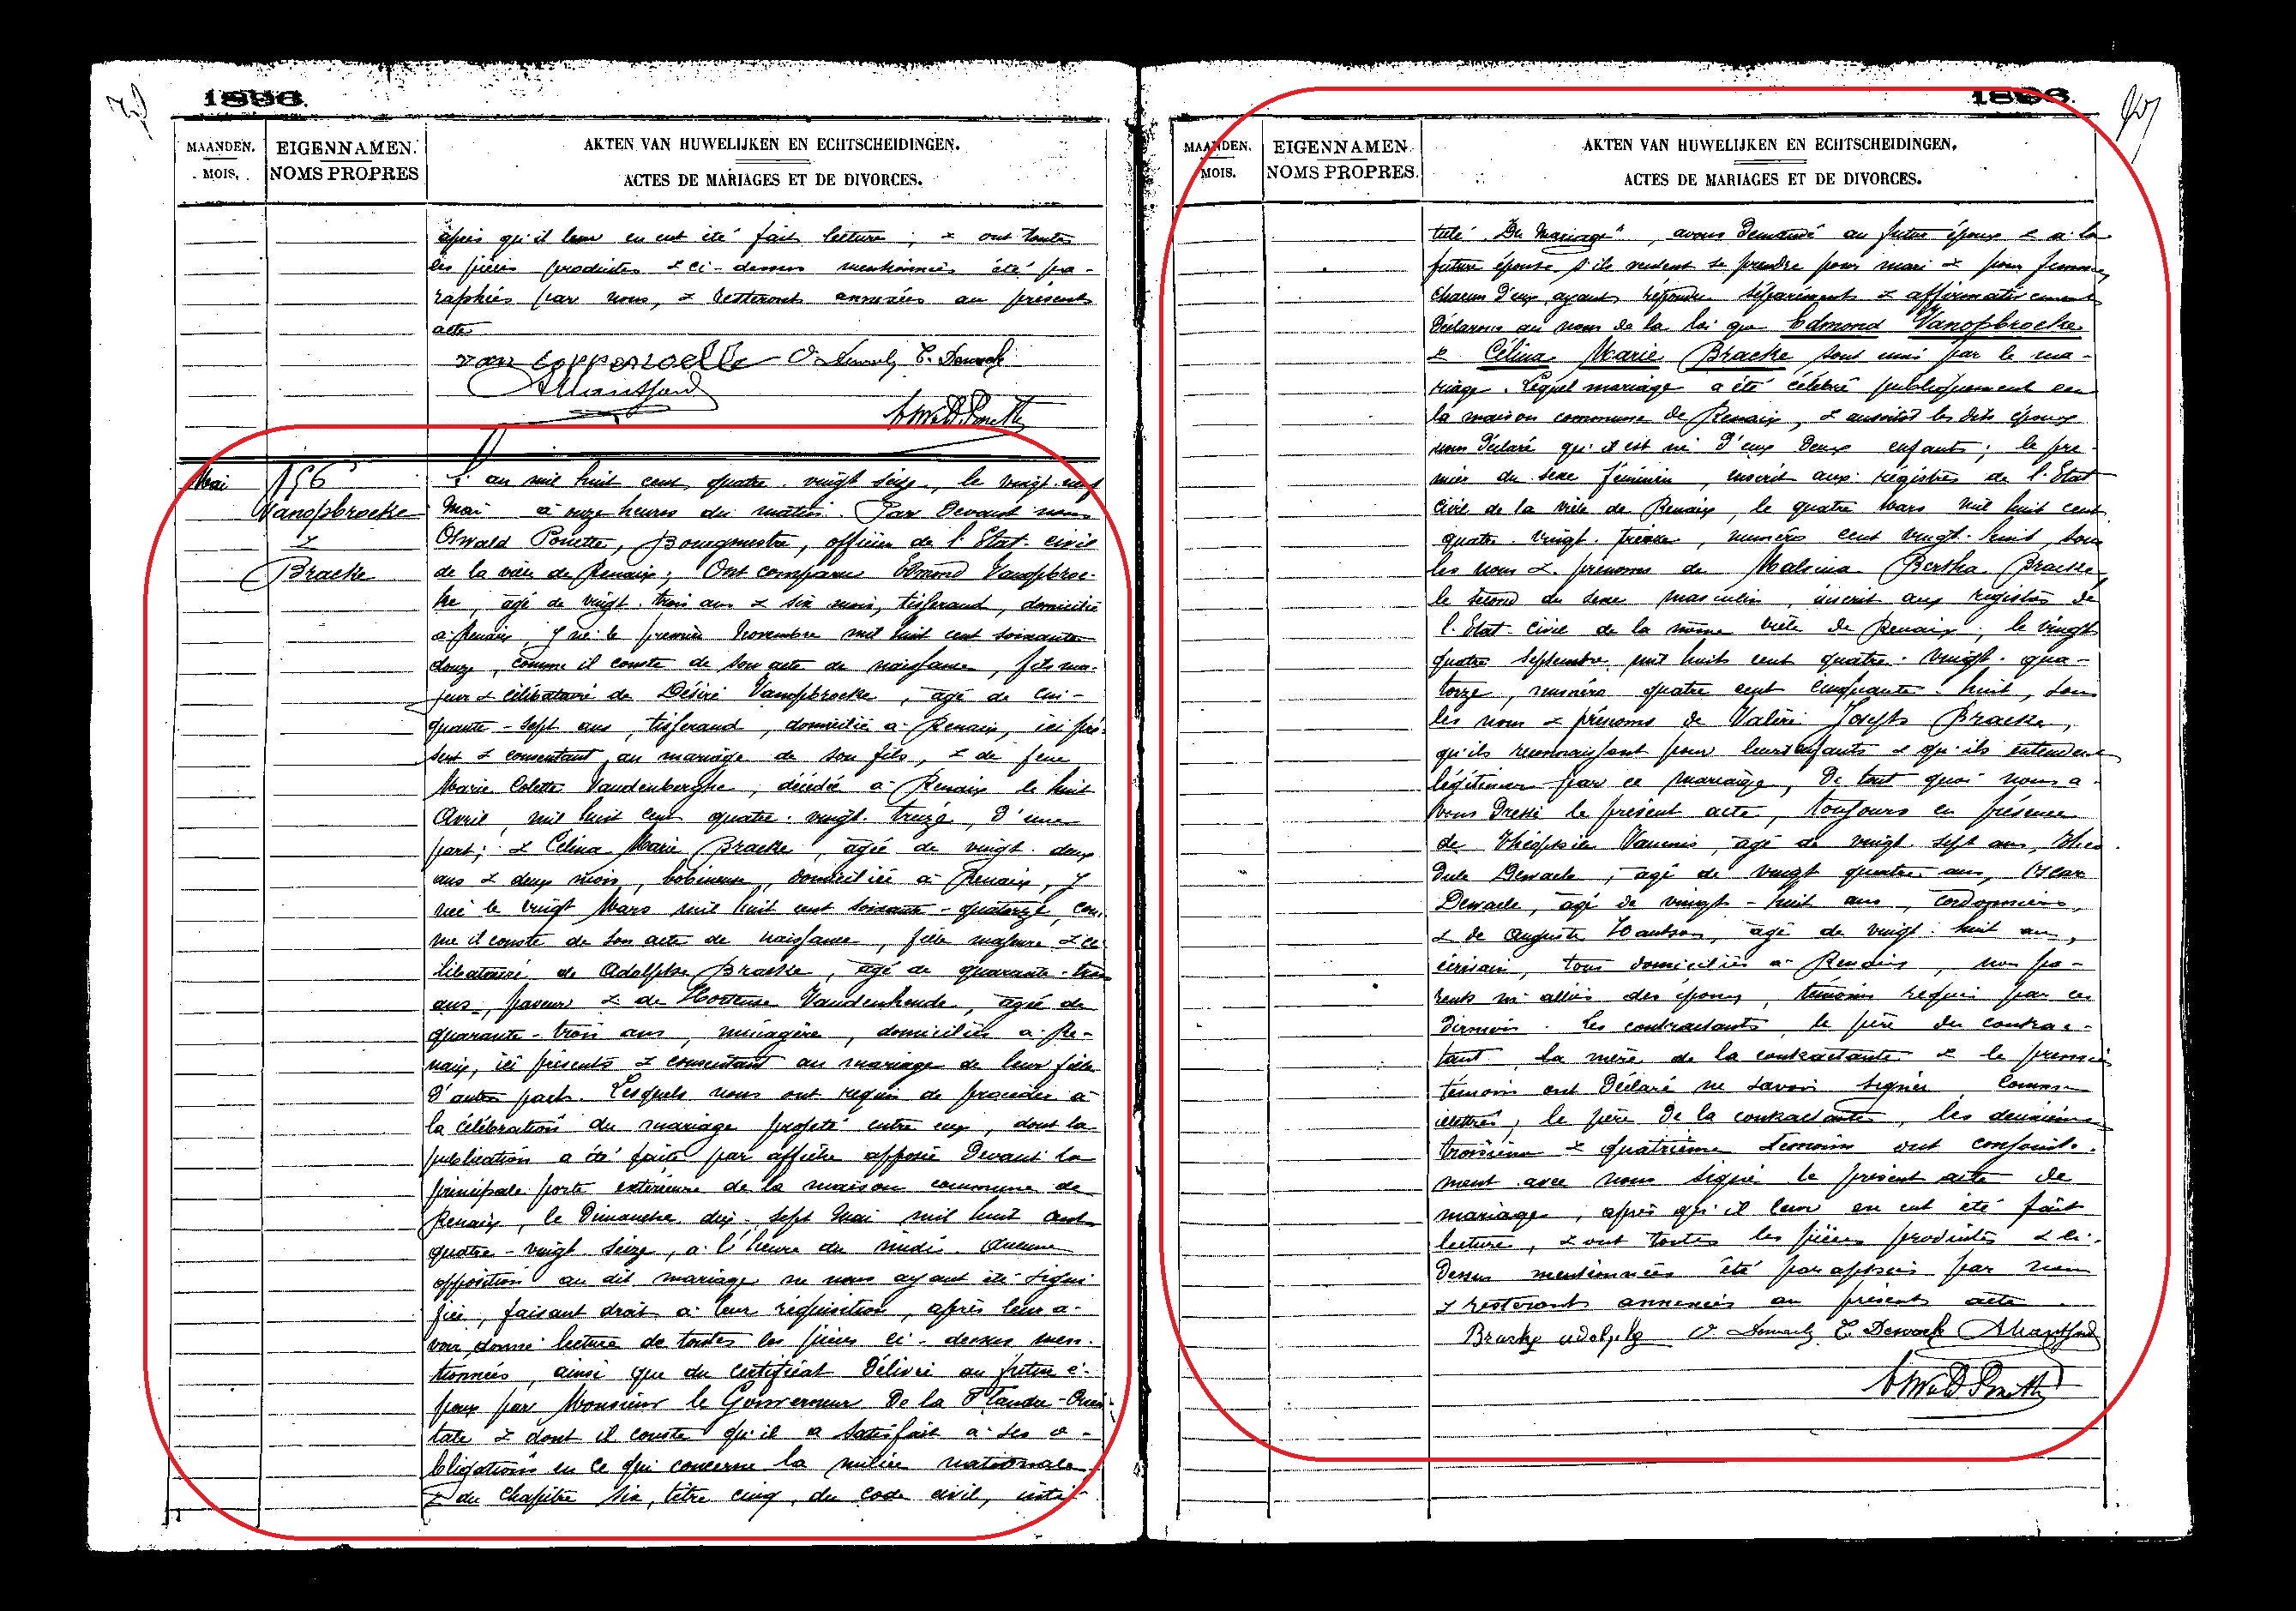 1896.
MAANDEN.
MOIS.
EIGENNAMEN.
NOMS PROPRES
AKTEN VAN HUWELIJKEN EN ECHTSCHEIDINGEN.
ACTES DE MARIAGES ET DE DIVORCES.
après qu'il leur en eut été fait lecture ; & ont toutes
les pièces produites & ci-dessus mentionnées été pa-
raphées par nous, & resteront annexées au présent
acte
van Coppenolle
Mai
Vanopbroecke
&
Bracke
L'an mil huit cent quatre-vingt seize, le vingt-neuf
Mai à onze heures du matin. Par Devant nous
Oswald Ponette, Bourgmestre, officier de l'Etat-civil
de la ville de Renaix; Ont comparu Edmond Vanopbroec-
ke, âgé de vingt-trois ans & six mois, tisserand, domicilié
à Renaix, y né le premier Novembre mil huit cent soixante
douze, comme il conste de son acte de naissance, fils ma-
jeur & célibataire de Désiré Vanopbroecke, âgé de cin-
quante-sept ans, tisserand, domicilié à Renaix, ici pré-
sent & consentant au mariage de son fils, & de feue
Marie Colette Vandenberghe, décédée à Renaix le huit
Avril, mil huit cent quatre-vingt-treize, d'une
part; & Célina Marie Bracke, âgée de vingt-deux
ans & deux mois, bobineuse, domiciliée à Renaix, y
née le vingt Mars mil huit cent soixante-quatorze, com-
me il conste de son acte de naissance, fille majeure & cé-
libataire de Adolphe Bracke, âgé de quarante-trois
ans, paveur & de Hortense Vandenhende, âgée de
quarante-trois ans, ménagère, domiciliés à Re-
naix, ici présents & consentant au mariage de leur fille
d'autre part. Lesquels nous ont requis de procéder à
la célébration du mariage projeté entre eux, dont la
publication a été faite par affiche apposée Devant la
principale porte extérieure de la maison commune de
Renaix, le Dimanche dix-sept Mai mil huit cent
quatre-vingt seize, à l'heure de midi. Aucune
opposition au dit mariage ne nous ayant été signi-
fiée, faisant droit à leur réquisition, après leur a-
voir donné lecture de toutes les pièces ci-dessus men-
tionnées, ainsi que du certificat délivré au futur é-
poux par Monsieur le Gouverneur De la Flandre-Orien-
tale & dont il conste qu'il a satisfait à ses o-
bligations en ce qui concerne la milice nationale
& du Chapitre six, titre cinq, du Code civil, inti-
1896.
MAANDEN.
MOIS.
EIGENNAMEN.
NOMS PROPRES.
AKTEN VAN HUWELIJKEN EN ECHTSCHEIDINGEN.
ACTES DE MARIAGES ET DE DIVORCES.
tulé "Du Mariage", avons demandé au futur époux & à la
future épouse s'ils veulent se prendre pour mari & pour femme,
chacun d'eux ayant répondu séparément & affirmativement
Déclarons au nom de la loi que Edmond Vanopbroecke
& Célina Marie Bracke sont unis par le ma-
riage. Lequel mariage a été célébré publiquement en
la maison commune de Renaix, & aussitôt les dits époux
nous déclaré qu'il est né d'eux Deux enfants; le pre-
mier du sexe féminin, inscrit aux registres de l'Etat
Civil de la ville de Renaix, le quatre Mars mil huit cent
quatre-vingt-treize, numéro cent vingt-huit, sous
les nom & prénoms de Malvina Bertha Bracke
le second du sexe masculin, inscrit aux registres de
l'Etat-Civil de la même ville de Renaix, le vingt
quatre Septembre mil huit cent quatre-vingt-qua-
torze, numéro quatre cent cinquante-huit, sous
les nom & prénoms de Valère Joseph Bracke,
qu'ils reconnaissent pour leurs enfants & qu'ils entendent
légitimer par ce mariage, De tout quoi nous a-
vons Dressé le présent acte, toujours en présence
de Théophile âgé de vingt-sept ans, Théo-
dule Dewaele, âgé de vingt quatre ans, Oscar
Dewaele, âgé de vingt-huit ans, cordonniers,
& de Auguste âgé de vingt-huit ans,
écrivain, tous domiciliés à Renaix, non pa-
rents ni alliés des époux, témoins requis par ces
derniers. Les contractants, le père du contrac-
tant, la mère de la contractante & le premier
témoin ont Déclaré ne savoir signer comme
illettrés, le père de la contractante, les deuxième
troisième & quatrième témoins ont conjointe-
ment avec nous signé le présent acte de
mariage, après qu'il leur en eut été fait
lecture, & ont toutes les pièces produites & ci-
Dessus mentionnées été paraphées par nous
& resteront annexées au présent acte.
Bracke adolphe